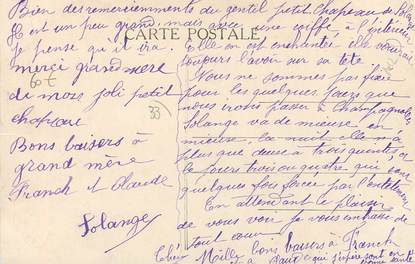 Bien des remerciements du gentil petit chapeau de
Il est un peu grand, mais avec une coiffe à l'intérieur
je pense qu'il ira. Elle en est enchantée elle
CARTE POSTALE
toujours l'avoir sur sa tête
60 €
33
merci grand mère
di mon joli petit
chapeau
Bons baisers à
grand mère
Franck et Claude
Solange
Nous ne sommes pas
pour les quelques jours que
nous irons passer à Champagnole
Solange va de mieux en
mieux, la nuit elle
plus que deux à trois quintes, et
le jour trois ou quatre qui sont
quelques fois forcée par l'entêtement
En attendant le plaisir
de vous voir je vous embrasse de
tout cœur
Milly bons baisers à Franck